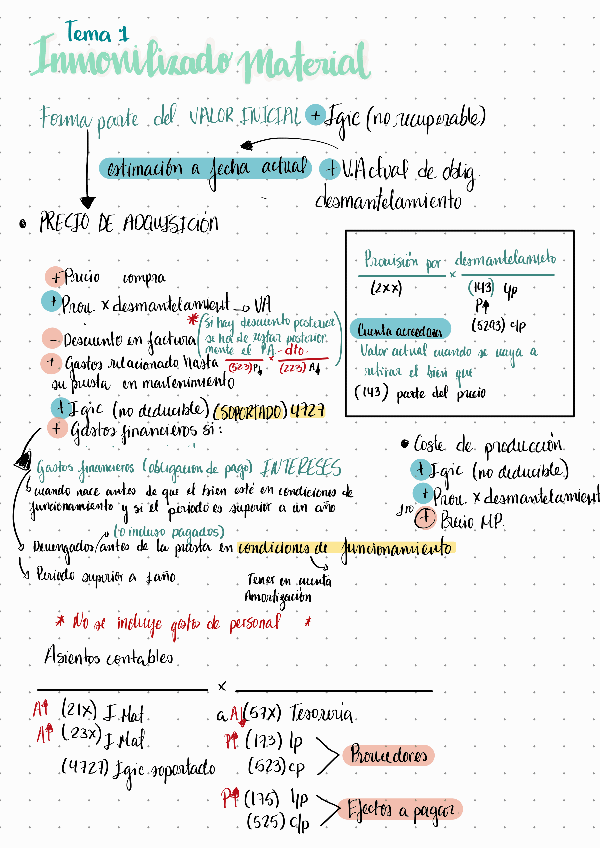 Tema 1
Inmovilizado Material
Forma parte del VALOR INICIAL + Igic (no recuperable)
estimación a fecha actual + V.Actual de oblig.
desmantelamiento
• PRECIO DE ADQUISICIÓN
+ Precio compra
+ Prov. x desmantelamient → VA
- Descuento en factura
* (Si hay descuento posterior
se ha de restar posterior.
mente el PA - dto.)
+ Gastos relacionado hasta
su puesta en mantenimiento
(523) P↓ x (223) A↓
+ Igic (no deducible) (SOPORTADO) 4727
+ Gastos financieros si:
Gastos financieros (obligación de pago) INTERESES
↳ cuando nace antes de que el bien esté en condiciones de
funcionamiento y si el período es superior a un año
(o incluso pagados)
↳ Devengados/antes de la puesta en condiciones de funcionamiento
↳ Periodo superior a 1 año
Tener en cuenta
Amortización
* No se incluye gasto de personal *
Provisión por desmantelamieto
(2XX) x (143) l/p
P↑
(5293) c/p
Cuenta acreedora
Valor actual cuando se vaya a
retirar el bien que
(143) parte del precio
• Coste de producción
+ Igic (no deducible)
+ Prov. x desmantelamient
+ Precio MP.
Asientos contables
x
A↑ (21X) I.Mat
A↑ (23X) I.Mat
(4727) Igic soportado
a A↓ (57X) Tesorería
P↑ (173) lp
(523) cp
Proveedores
P↑ (175) l/p
(525) c/p
Efectos a pagar